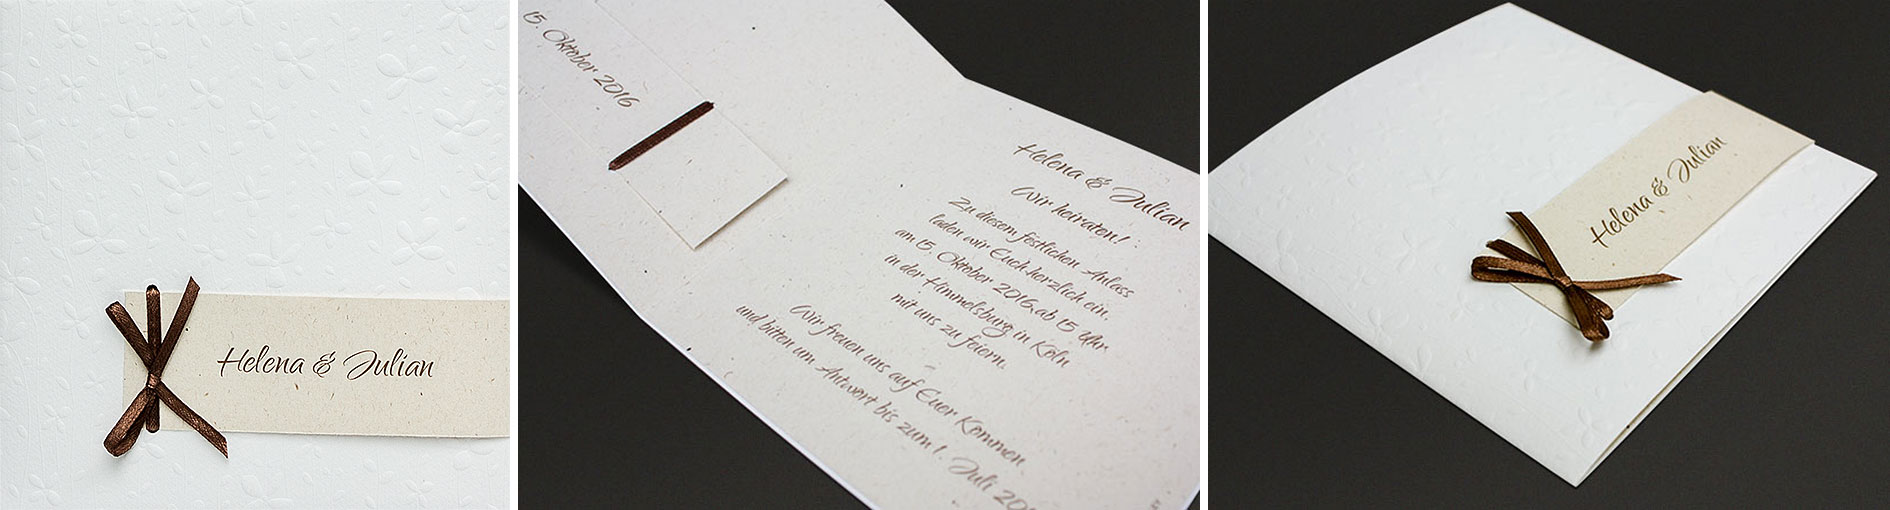 Helena & Julian
15. Oktober 2016
Helena & Julian
Wir heiraten!
Zu diesem festlichen Anlass
laden wir Euch herzlich ein,
am 15. Oktober 2016, ab 15 Uhr
in der Himmelsburg in Köln
mit uns zu feiern.
Wir freuen uns auf Euer Kommen
und bitten um Antwort bis zum 1. Juli
Helena & Julian